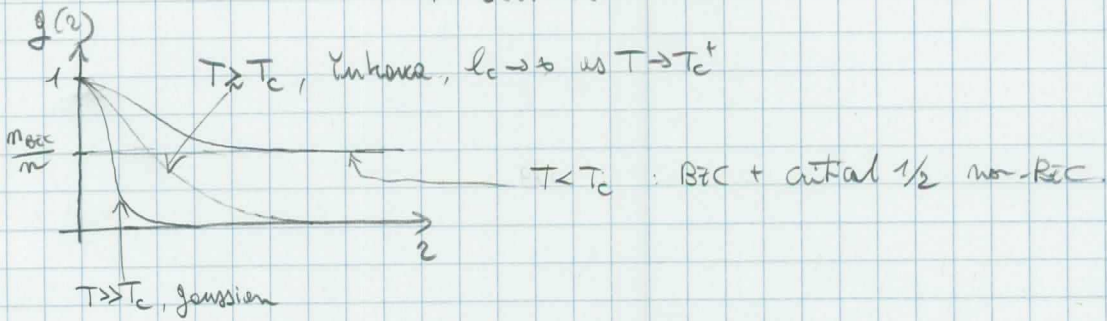 g(r)
T ≳ T_c, Yukawa, l_c → ∞ as T → T_c^+
1
n_BEC/n
T < T_c : BEC + critical 1/r non-BEC.
r
T >> T_c, gaussian